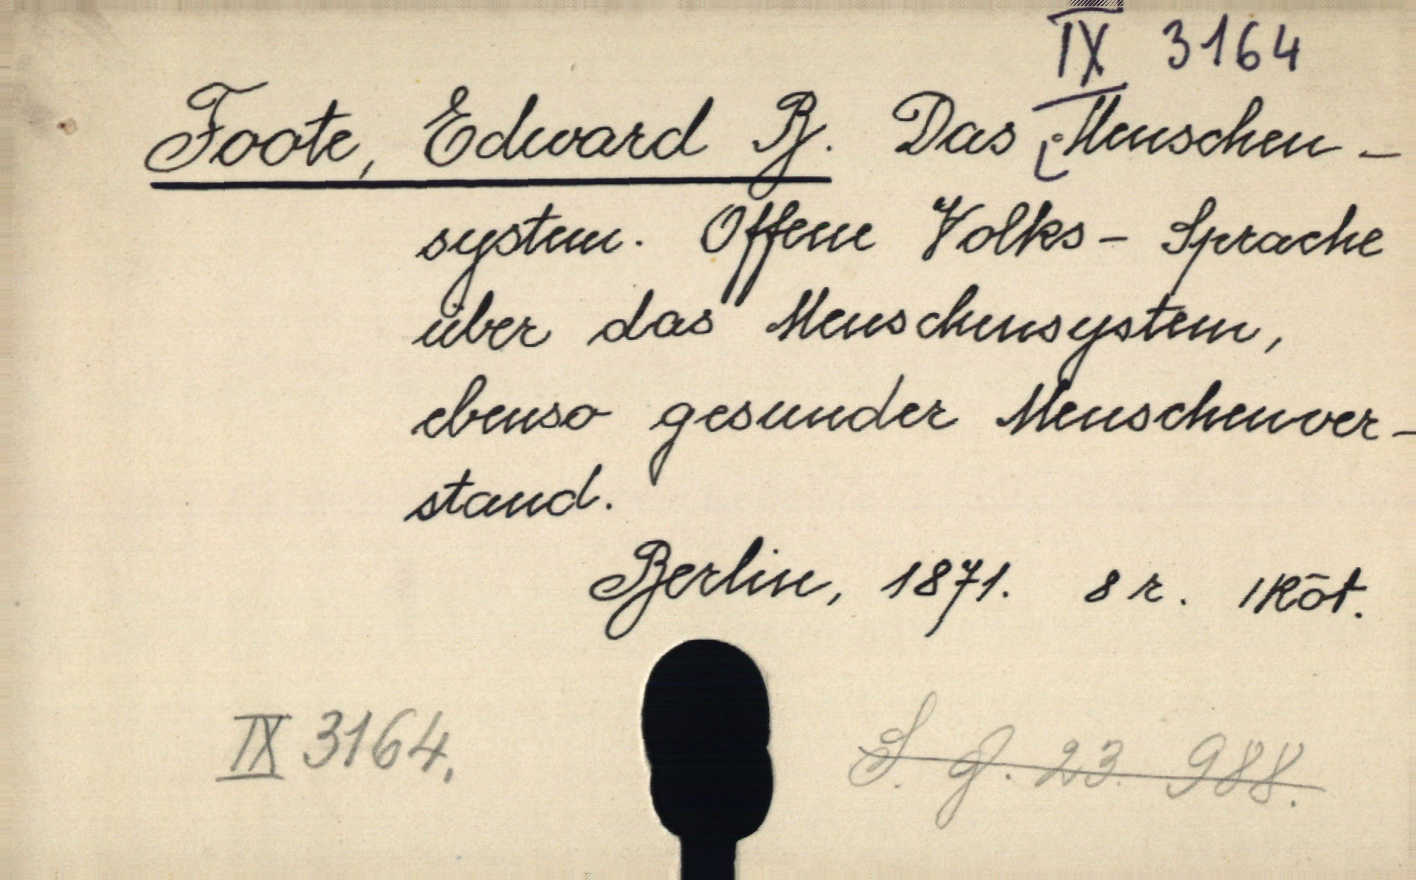 IX 3164
Foote, Edward B. Das Menschen-
system. Offene Volks-Sprache
über das Menschensystem,
ebenso gesunder Menschenver-
stand.
Berlin, 1871. 8 r. 1 köt.
IX 3164.
S. g. 23. 988.